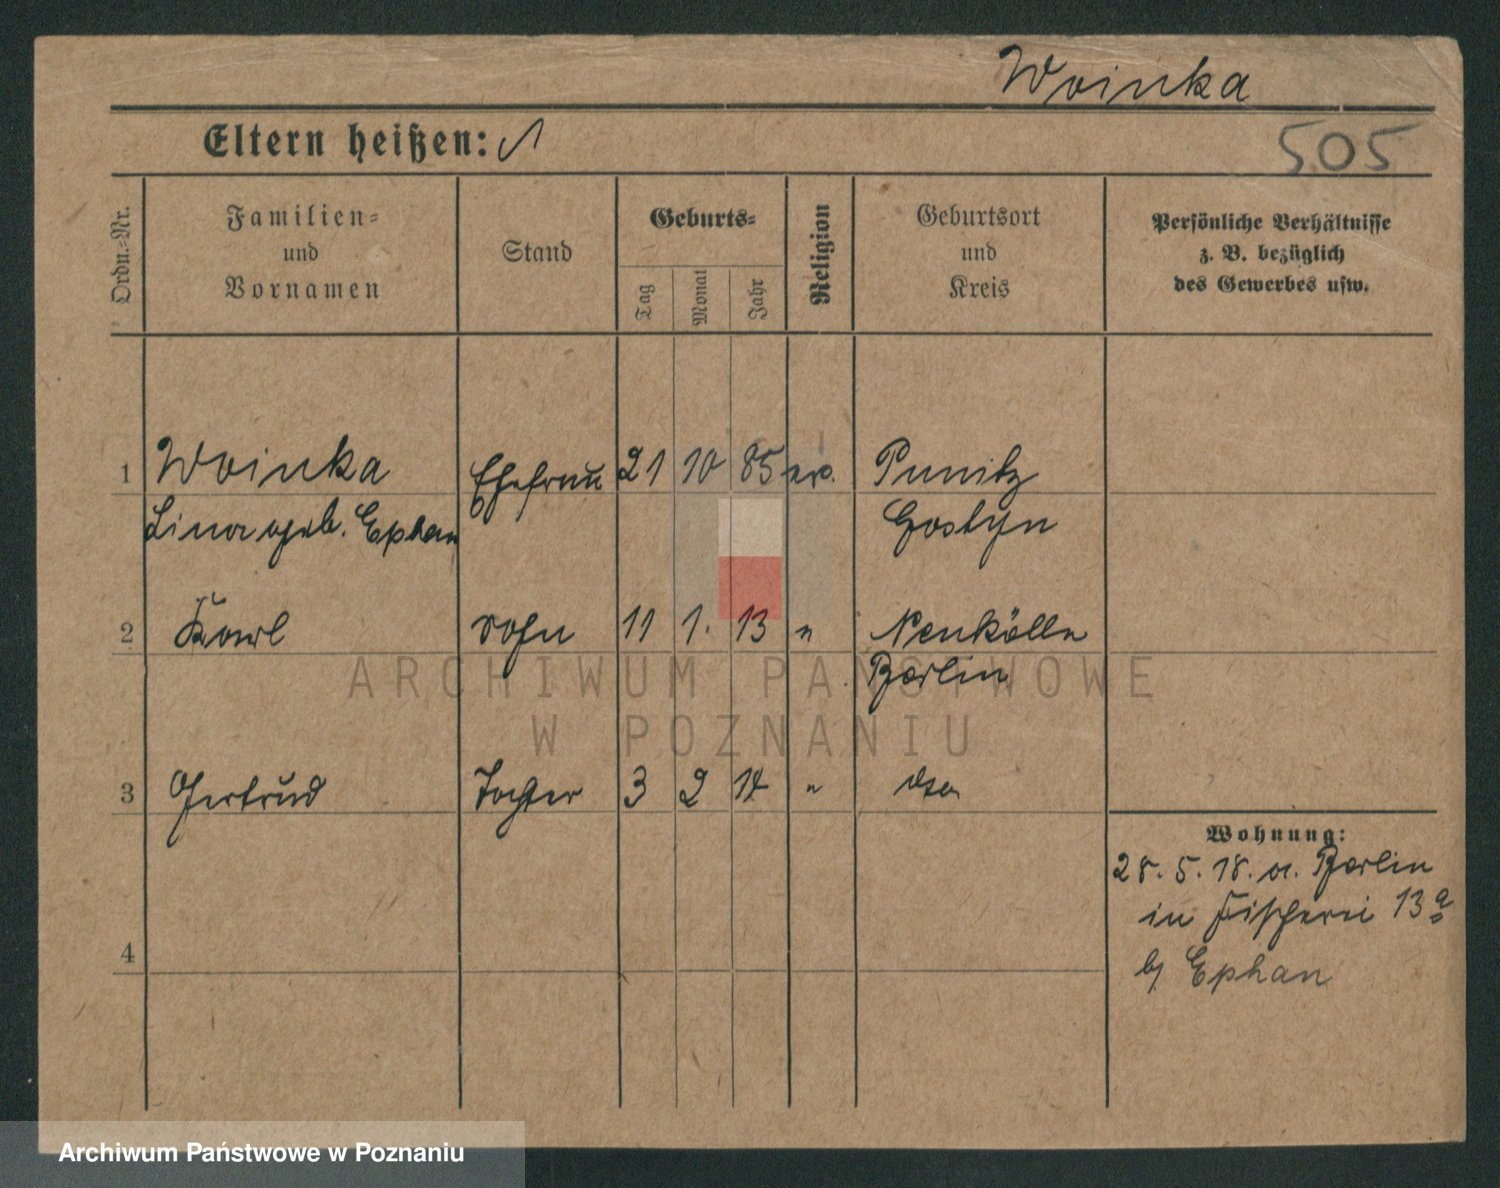 Woinka
Eltern heißen:
505
Ordn.-Nr.
Familien-
und
Vornamen
Stand
Geburts-
Tag
Monat
Jahr
Religion
Geburtsort
und
Kreis
Persönliche Verhältnisse
z. B. bezüglich
des Gewerbes usw.
1 Woinka Ehefrau 21 10 85 Punitz
Lina geb. Ephan Gostyn
2 Karl Sohn 11 1. 13 " Neukölln
Berlin
3 Gertrud Tochter 3 2 14 " dto
Wohnung:
28. 5. 18. a. Berlin
in Fischerei 13a
b/ Ephan
4
ARCHIWUM PAŃSTWOWE
W POZNANIU
Archiwum Państwowe w Poznaniu